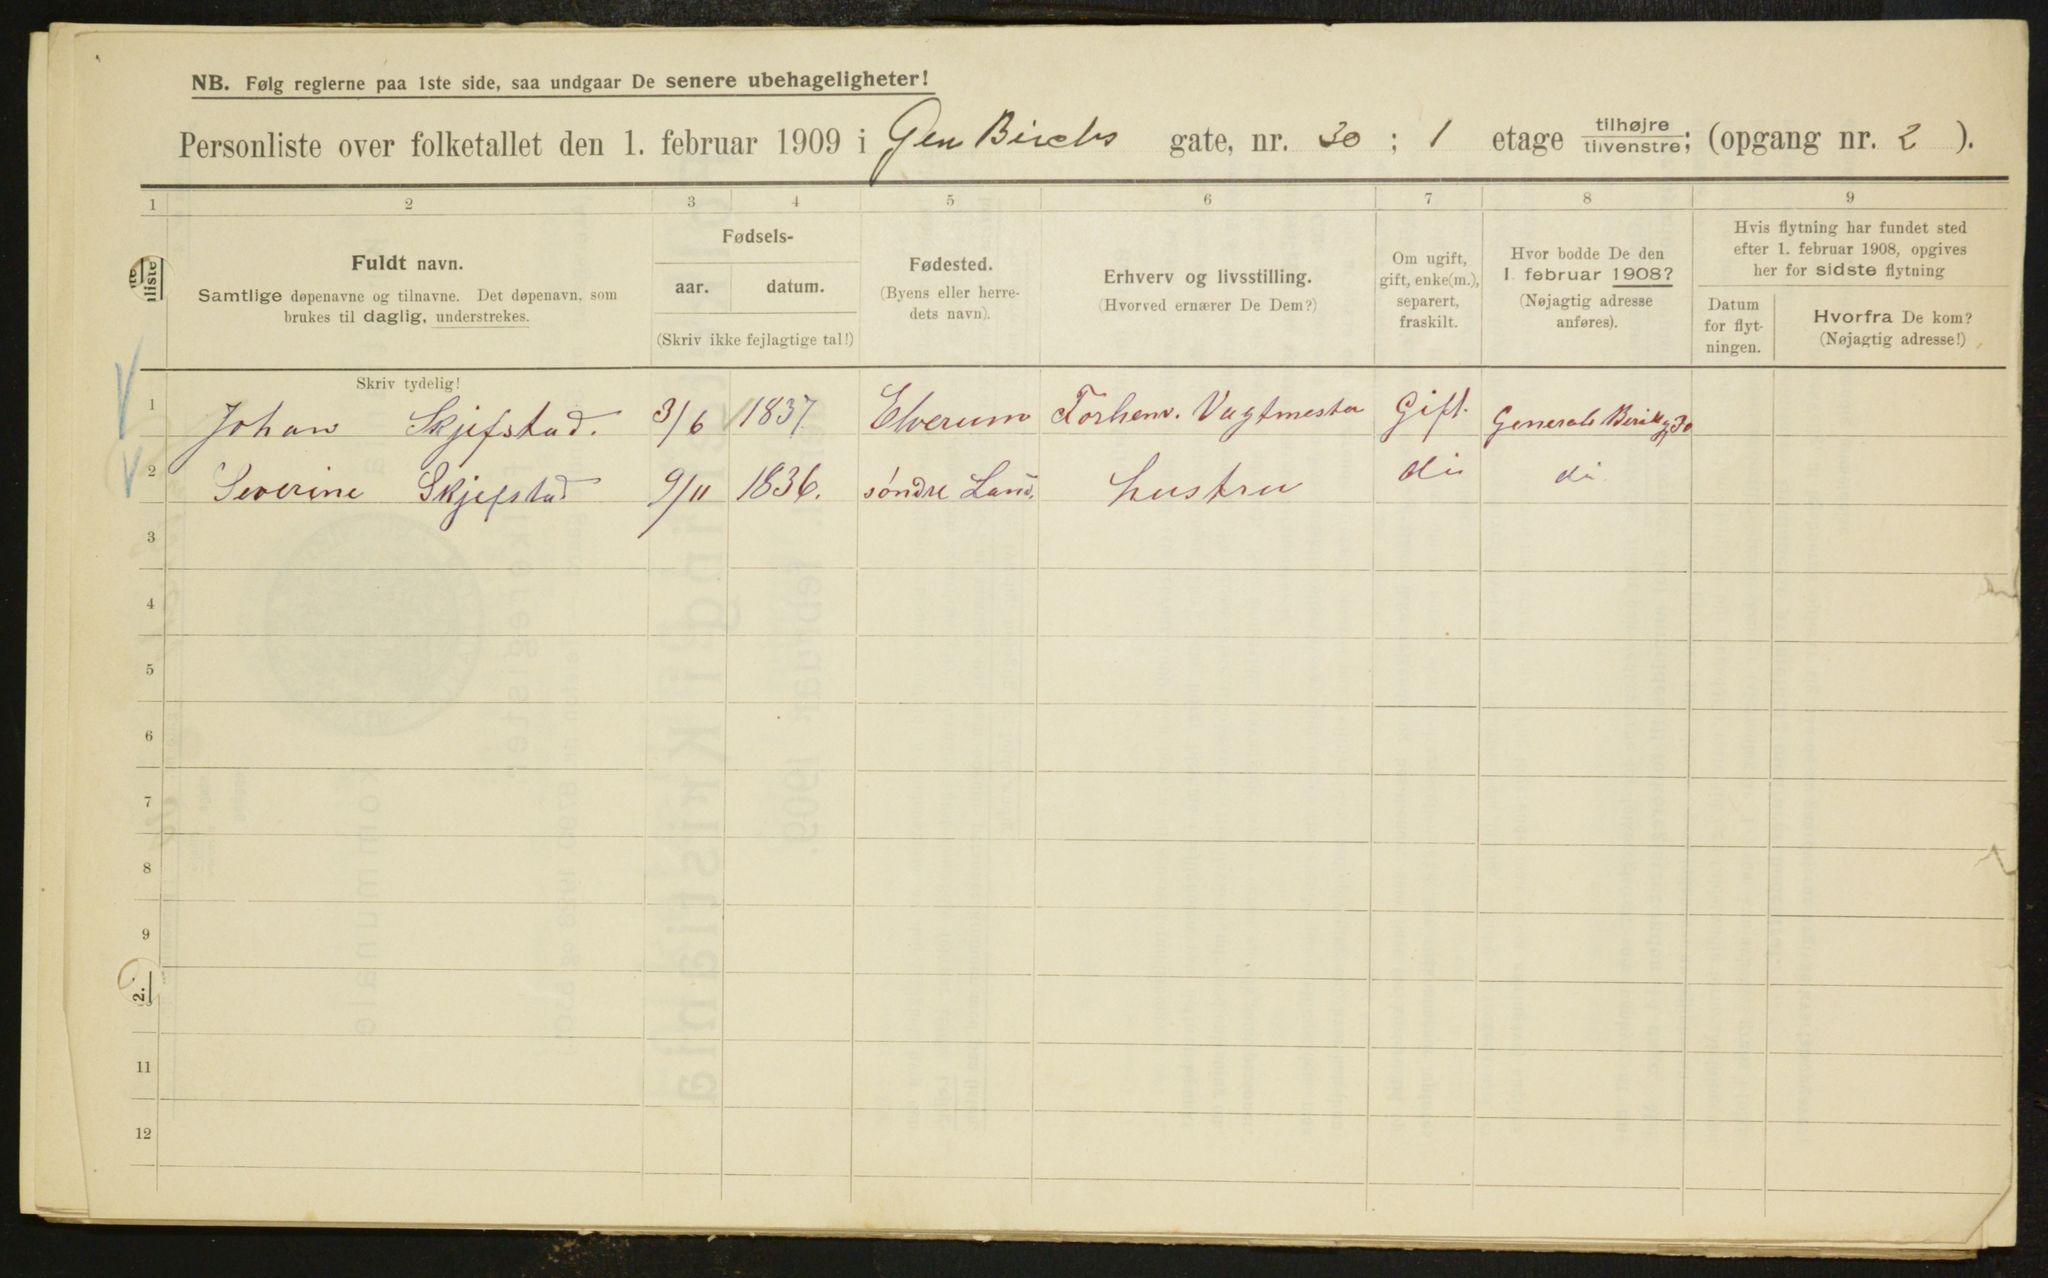 NB. Følg reglerne paa 1ste side, saa undgaar De senere ubehageligheter!
Personliste over folketallet den 1. februar 1909 i Gen Birchs gate, nr. 30 ; 1 etage tilhøjre tilvenstre; (opgang nr. 2 ).
1 2 3 4 5 6 7 8 9
Fuldt navn.
Samtlige døpenavne og tilnavne. Det døpenavn, som
brukes til daglig, understrekes.
Skriv tydelig!
Fødsels-
aar. datum.
(Skriv ikke fejlagtige tal!)
Fødested.
(Byens eller herre-
dets navn).
Erhverv og livsstilling.
(Hvorved ernærer De Dem?)
Om ugift,
gift, enke(m.),
separert,
fraskilt.
Hvor bodde De den
1. februar 1908?
(Nøjagtig adresse
anføres).
Hvis flytning har fundet sted
efter 1. februar 1908, opgives
her for sidste flytning
Datum
for flyt-
ningen.
Hvorfra De kom?
(Nøjagtig adresse!)
1 Johan Skjefstad. 3/6 1837. Elverum Forhenv. Vagtmester Gift. Generals Birch g 30
2 Severine Skjefstad 9/11 1836. søndre Land. hustru do do
3
4
5
6
7
8
9
2.
11
12